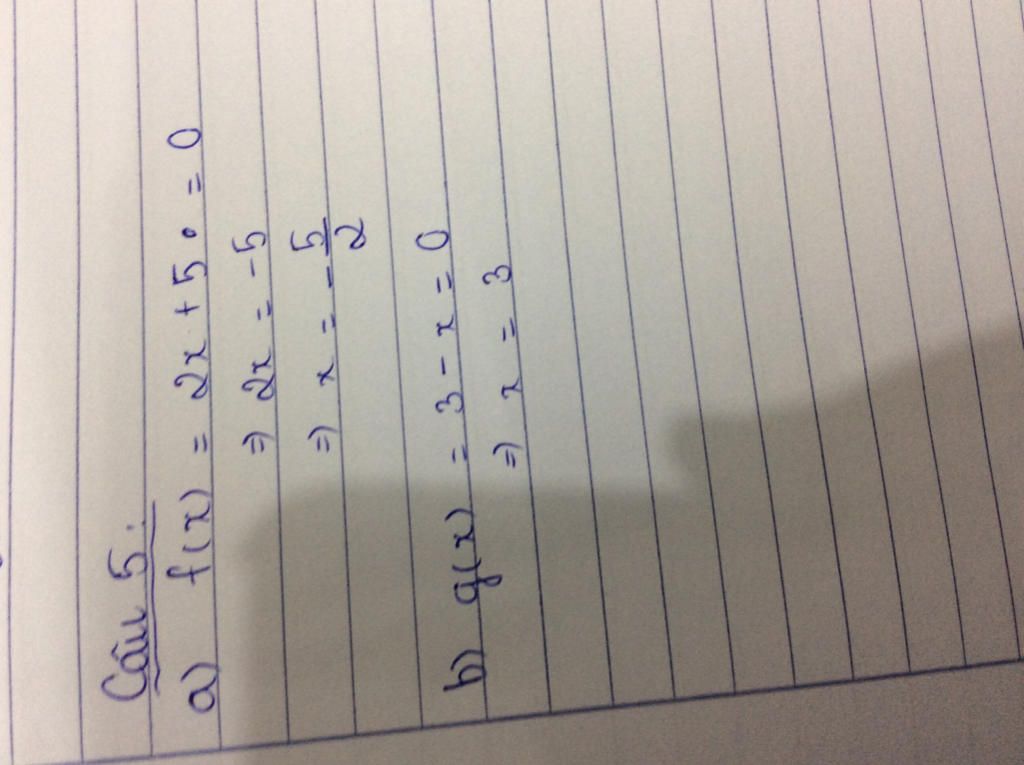 Câu 5:
a) f(x) = 2x + 5 = 0
=> 2x = -5
=> x = -5/2
b) g(x) = 3 - x = 0
=> x = 3